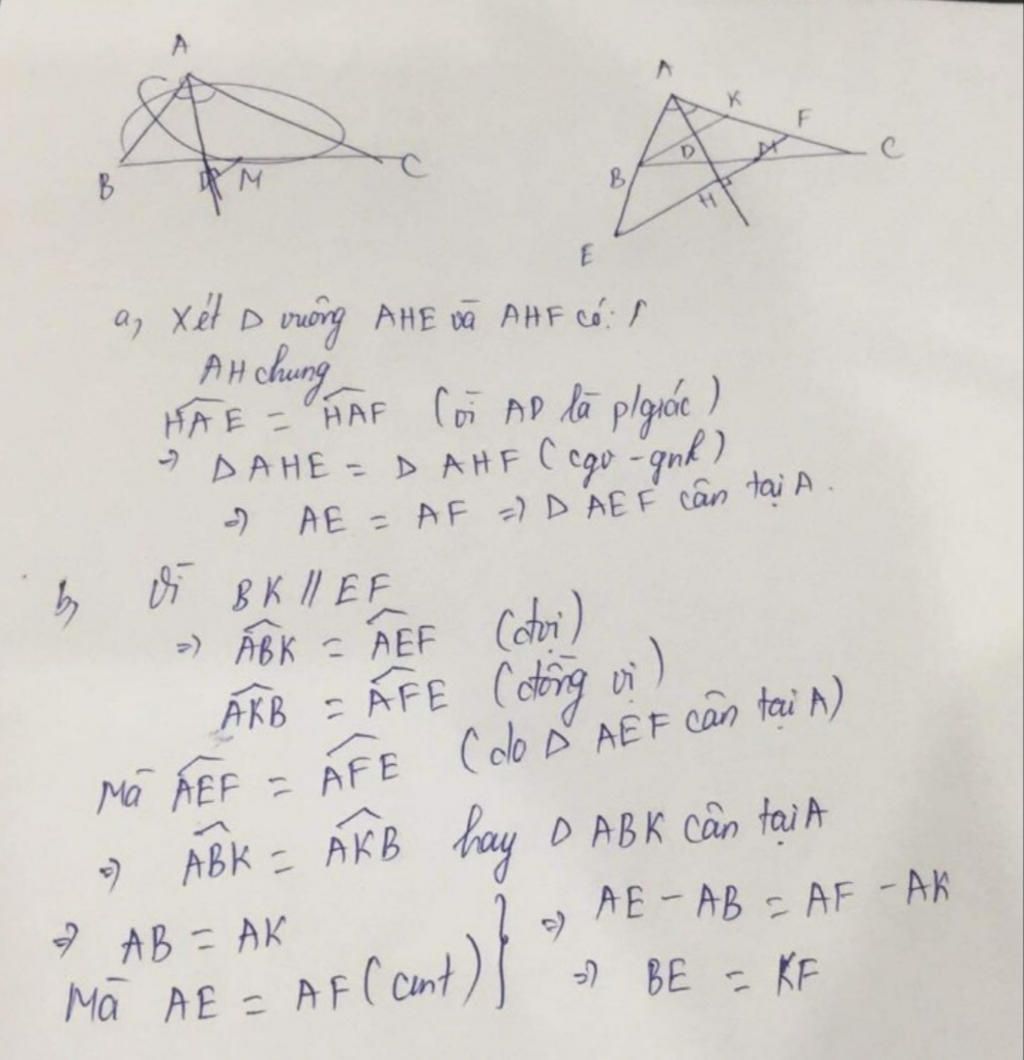 A
B
D
M
C
A
K
F
B
D
M
C
H
E
a, Xét Δ vuông AHE và AHF có:
AH chung
HAE = HAF (vì AD là p/giác)
=> Δ AHE = Δ AHF (cgv - gnk)
=> AE = AF => Δ AEF cân tại A.
b, Vì BK // EF
=> ABK = AEF (đvị)
AKB = AFE (đồng vị)
Mà AEF = AFE (do Δ AEF cân tại A)
=> ABK = AKB hay Δ ABK cân tại A
=> AB = AK
Mà AE = AF (cmt)
=> AE - AB = AF - AK
=> BE = KF